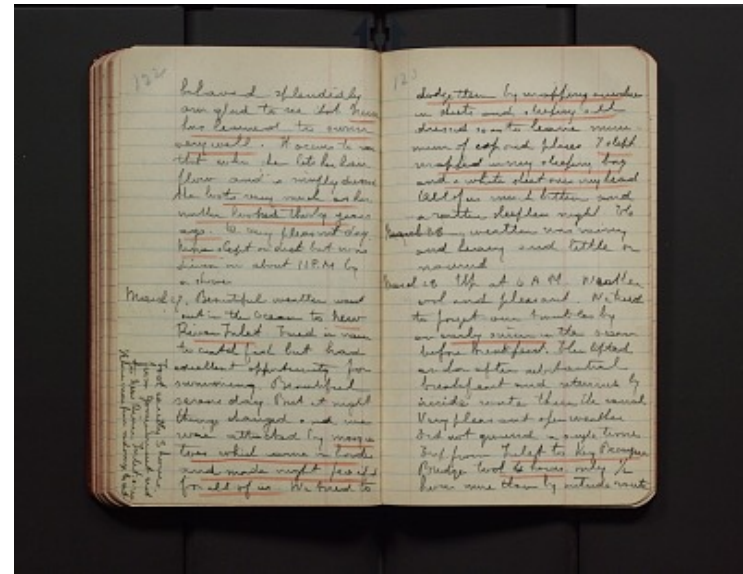 122
behaved splendidly
am glad to see that
has learned to swim
very well. It occurs to me
that when she lets her hair
flow and is simply dressed
she looks very much as her
mother looked thirty years
ago. A very pleasant day.
slept on deck but was
driven in about 11 P.M by
a shower
March 27. Beautiful weather went
out in the ocean to New
River Inlet. Tried in vain
to catch fish but had
excellent opportunity for
swimming. Beautiful
serene day. But at night
things changed and we
were attacked by mosqui
toes which came in hordes
and made night
for all of us. We tried to
Took exactly 3 hours
from Government cut
to New River Inlet
123
dodge them by wrapping ourselves
in sheets and sleeping all
dressed so as to leave mini-
mum of exposed places. I slept
wrapped in my sleeping bag
and a white sheet over my head
All of us much bitten and
a rather sleepless night. The
weather was
and heavy and little or
March 28 Up at 6 A.M. Weather
cool and pleasant. We tried
to forget our troubles by
an early swim in the ocean
before breakfast. Then lifted
anchor after substantial
breakfast and returned by
inside route thru the canal
Very pleasant open weather
Did not ground a single time
Trip from Inlet to Key Biscayne
Bridge took hours only ½
hour more than by outside route